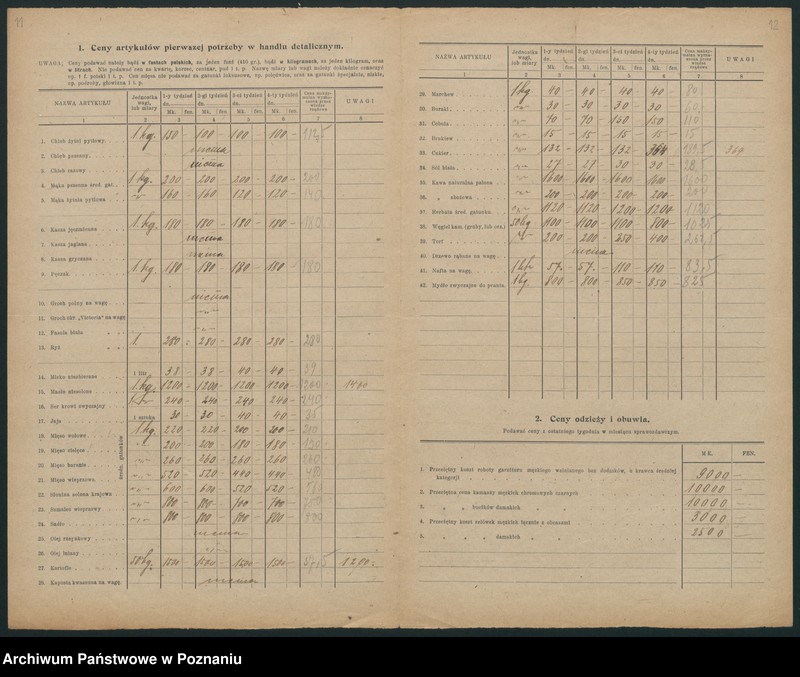 1. Ceny artykułów pierwszej potrzeby w handlu detalicznym.
UWAGA. Ceny podawać należy bądź w funtach polskich, za jeden funt (410 gr.), bądź w kilogramach, za jeden kilogram, oraz
w litrach. Nie podawać cen na kwarty, korce, centnar, pud i t. p. Nazwę miary lub wagi należy dokładnie oznaczyć
np. 1 f. polski i t. p. Cen mięsa nie podawać za gatunki luksusowe, np. polędwica, oraz za gatunki specjalnie niskie,
np. podroby, głowizna i t. p.
NAZWA ARTYKUŁU Jednostka wagi, lub miary 1-y tydzień 2-gi tydzień 3-ci tydzień 4-ty tydzień UWAGI
dn. dn. dn. dn.
Mk. fen. Mk. fen. Mk. fen. Mk. fen.
1 2 3 4 5 6 7 8
1. Chleb żytni pytlowy 1 kg. 150 - 100 - 100 - 100 - 112,5
2. Chleb pszenny niema
3. Chleb razowy niema
4. Mąka pszenna śred. gat. 1 kg. 200 - 200 - 200 - 200 - 200
5. Mąka żytnia pytlowa 160 - 160 120 - 120 - 140
6. Kasza jęczmienna 1 kg. 180 180 - 180 - 180 - 180
7. Kasza jaglana niema
8. Kasza gryczana niema
9. Pęczak 1 kg. 180 - 180 - 180 - 180 - 180
10. Groch polny na wagę niema
11. Groch okr. „Victoria" na wagę -„-
12. Fasola biała „ „ -„-
13. Ryż „ „ 280 280 - 280 - 280 - 280
14. Mleko niezbierane 1 litr 38 - 38 - 40 - 40 - 39
15. Masło niesolone 1 kg. 1200 - 1200 - 1200 - 1200
16. Ser krowi zwyczajny 240 - 240 240 - 240 - 240
17. Jaja 1 sztuka 30 - 30 - 40 - 40 - 35
18. Mięso wołowe 1 kg 220 - 220 - 200 - 200 - 210
19. Mięso cielęce 200 - 200 180 - 180 - 190
20. Mięso baranie 260 - 260 - 260 - 260 260
21. Mięso wieprzowe 520 - 520 - 440 - 440 - 480
22. Słonina solona krajowa 600 - 600 - 520 520 -
23. Szmalec wieprzowy 800 - 800 - 700 - 700 - 750
24. Sadło 800 - 800 - 800 - 800 - 800
średn. gatunków
25. Olej rzepakowy niema
26. Olej lniany
27. Kartofle 50 kg. 1500 - 1500 - 1500 - 1500 - 1200.
28. Kapusta kwaszona na wagę niema
92
NAZWA ARTYKUŁU Jednostka wagi, lub miary 1-y tydzień 2-gi tydzień 3-ci tydzień 4-ty tydzień UWAGI
dn. dn. dn. dn.
Mk. fen. Mk. fen. Mk. fen. Mk. fen.
1 2 3 4 5 6 7 8
29. Marchew 1 kg 40 - 40 - 40 - 40 -
30. Buraki 30 - 30 - 30 - 30 -
31. Cebula 70 - 70 - 150 150 - 110
32. Brukiew 15 - 15 - 15 - 15 - 15
33. Cukier 132 - 132 - 132
34. Sól biała 27 - 27 30 - 30 - 28,5
35. Kawa naturalna palona 1600 1600 - 1600 - 1600 - 1600
36. „ zbożowa 200 - 200 - 200 - 200
37. Herbata śred. gatunku 1120 - 1120 - 1200 - 1200 -
38. Węgiel kam. (gruby, lub orz.) 50 kg 1100 - 1100 - 1100 800 - 1025
39. Torf 200 - 200 - 250 - 400 - 262,5
40. Drzewo rąbane na wagę niema
41. Nafta na wagę 57 - 57 - 110 - 110 - 83,5
42. Mydło zwyczajne do prania 1 kg 800 - 800 - 850 - 850 - 825
2. Ceny odzieży i obuwia.
Podawać ceny z ostatniego tygodnia w miesiącu sprawozdawczym.
MK. FEN.
1. Przeciętny koszt roboty garnituru męskiego wełnianego bez dodatków, u krawca średniej
kategorji 9000 -
2. Przeciętna cena kamaszy męskich chromowych czarnych 10000 -
3. „ „ bucików damskich „ 10000 -
4. Przeciętny koszt zelówek męskich łącznie z obcasami 3000 -
5. „ „ „ damskich „ „ 2500 -
Archiwum Państwowe w Poznaniu